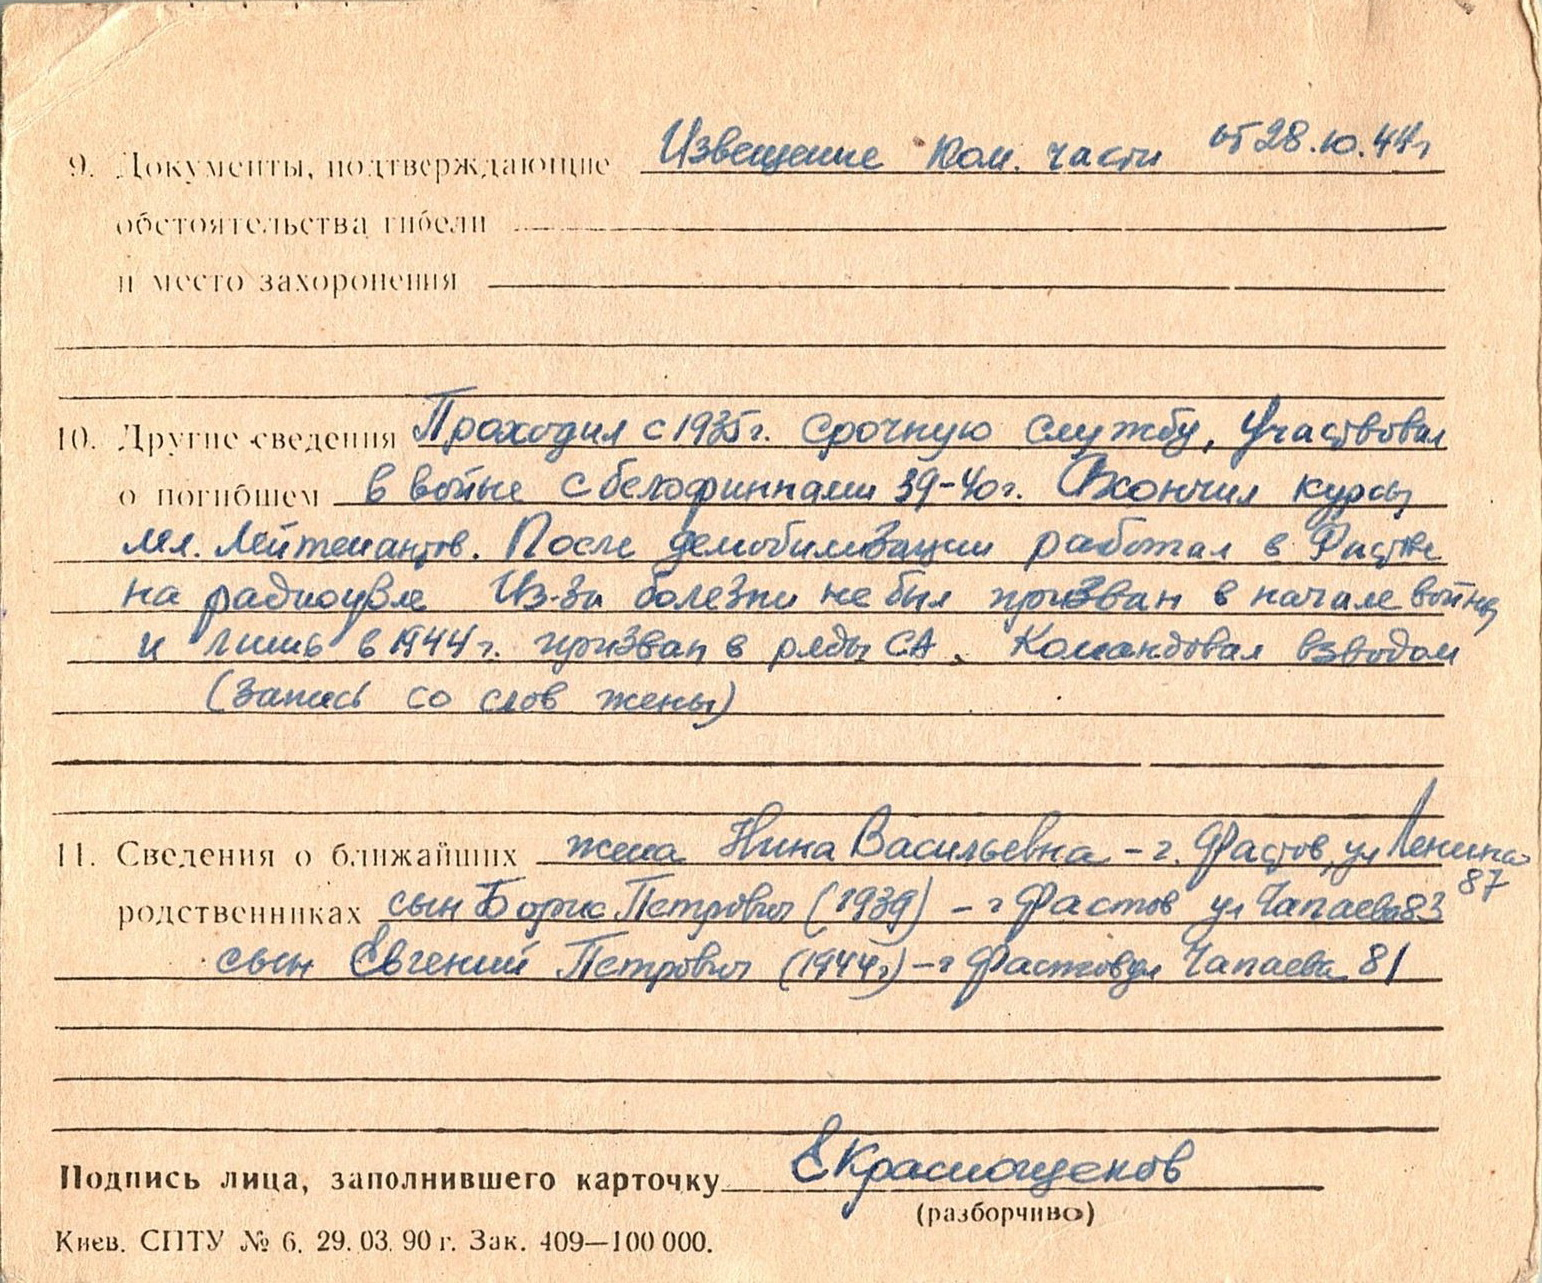 9. Документы, подтверждающие Извещение ком. части от 28.10.44г
обстоятельства гибели
и место захоронения
10. Другие сведения Проходил с 1935г. срочную службу, Участвовал
о погибшем в войне с белофиннами 39-40г. Окончил курсы
мл. Лейтенантов. После демобилизации работал в Фастове
на радиоузле Из-за болезни не был призван в начале войны
и лишь в 1944г. призван в ряды СА. Командовал взводом
(запись со слов жены)
11. Сведения о ближайших жена Нина Васильевна - г. Фастов, ул Ленина
87
родственниках сын Борис Петрович (1939) - г Фастов ул Чапаева 83
сын Евгений Петрович (1944г) - г Фастов ул Чапаева 81
Подпись лица, заполнившего карточку ЕКраснощеков
(разборчиво)
Киев. СПТУ № 6. 29. 03. 90 г. Зак. 409—100 000.